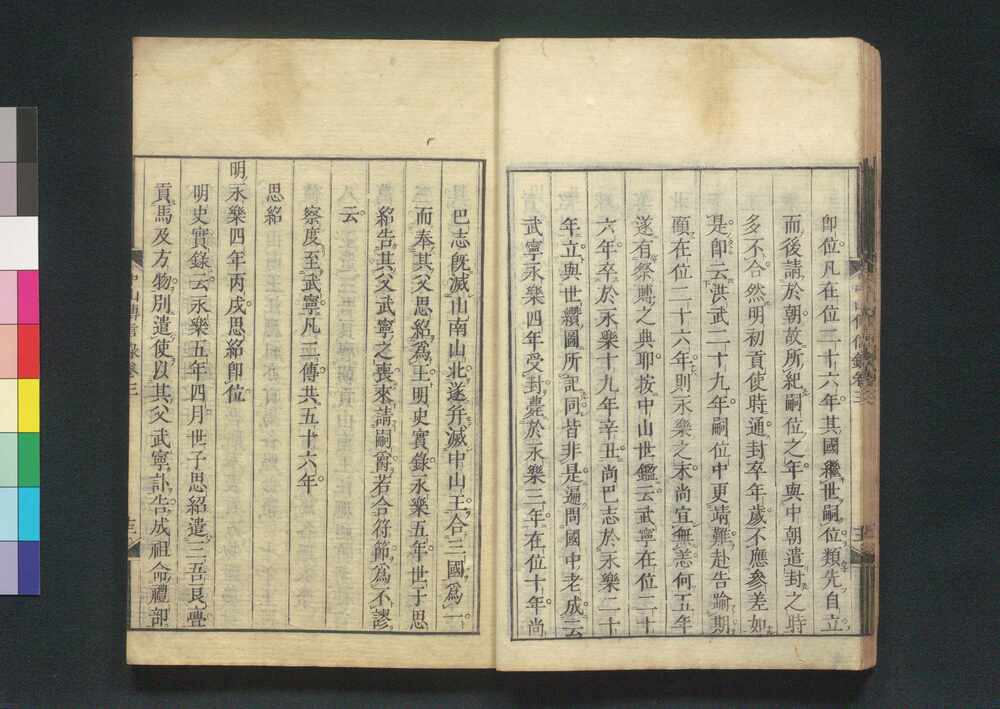 即位凡在位二十六年其國繼世嗣位類先自立
而後請於朝故所紀嗣位之年與中朝遣封之時
多不合然明初貢使時通封卒年歲不應參差如
是即云洪武二十九年嗣位中更靖難赴告踰期
頤在位二十六年則永樂之末尚宜無恙何五年
遂有祭賻之典耶按中山世鑑云武寧在位二十
六年卒於永樂十九年辛丑尚巴志於永樂二十
年立與世纘圖所記同皆非是遍問國中老成云
武寧永樂四年受封薨於永樂三年在位十年尚
巴志旣滅山南山北遂幷滅中山王合三國爲一
而奉其父思紹爲王明史實錄永樂五年世子思
紹告其父武寧之喪來請嗣爵若合符節爲不謬
云
察度至武寧凡二傳共五十六年
思紹
明永樂四年丙戌思紹卽位
明史實錄云永樂五年四月世子思紹遣三吾良亹
貢馬及方物別遣使以其父武寧訃告成祖命禮部
中山傳信錄卷三